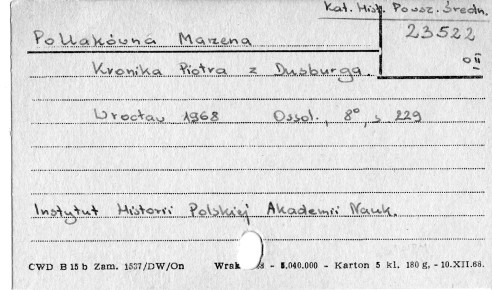 Kat. Hist. Powsz. Średn.
Pollakówna Marzena
23522
OII
Kronika Piotra z Dusburga.
Wrocław 1968 Ossol., 8°, s 229
Instytut Historii Polskiej Akademii Nauk.
CWD B 15 b Zam. 1537/DW/On Wrak 68 - 5,040.000 - Karton 5 kl. 180 g, - 10.XII.68.